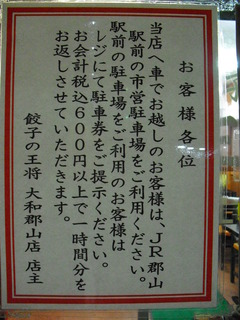 お客様各位
当店へ車でお越しのお客様は、ＪＲ郡山
駅前の市営駐車場をご利用ください。
駅前の駐車場をご利用のお客様は
レジにて駐車券をご提示ください。
お会計税込６００円以上で一時間分を
お返しさせていただきます。
餃子の王将 大和郡山店 店主